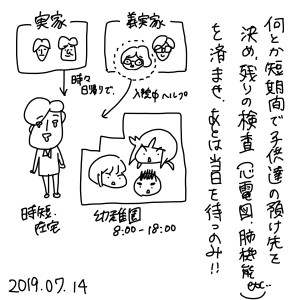 何とか短期間で子供達の預け先を
決め、残りの検査(心電図、肺機能etc…)
を済ませ、あとは当日を待つのみ!!
実家
義実家
時々
日帰りで
入院中ヘルプ
時短・
在宅
幼稚園
8:00-18:00
2019.07.14